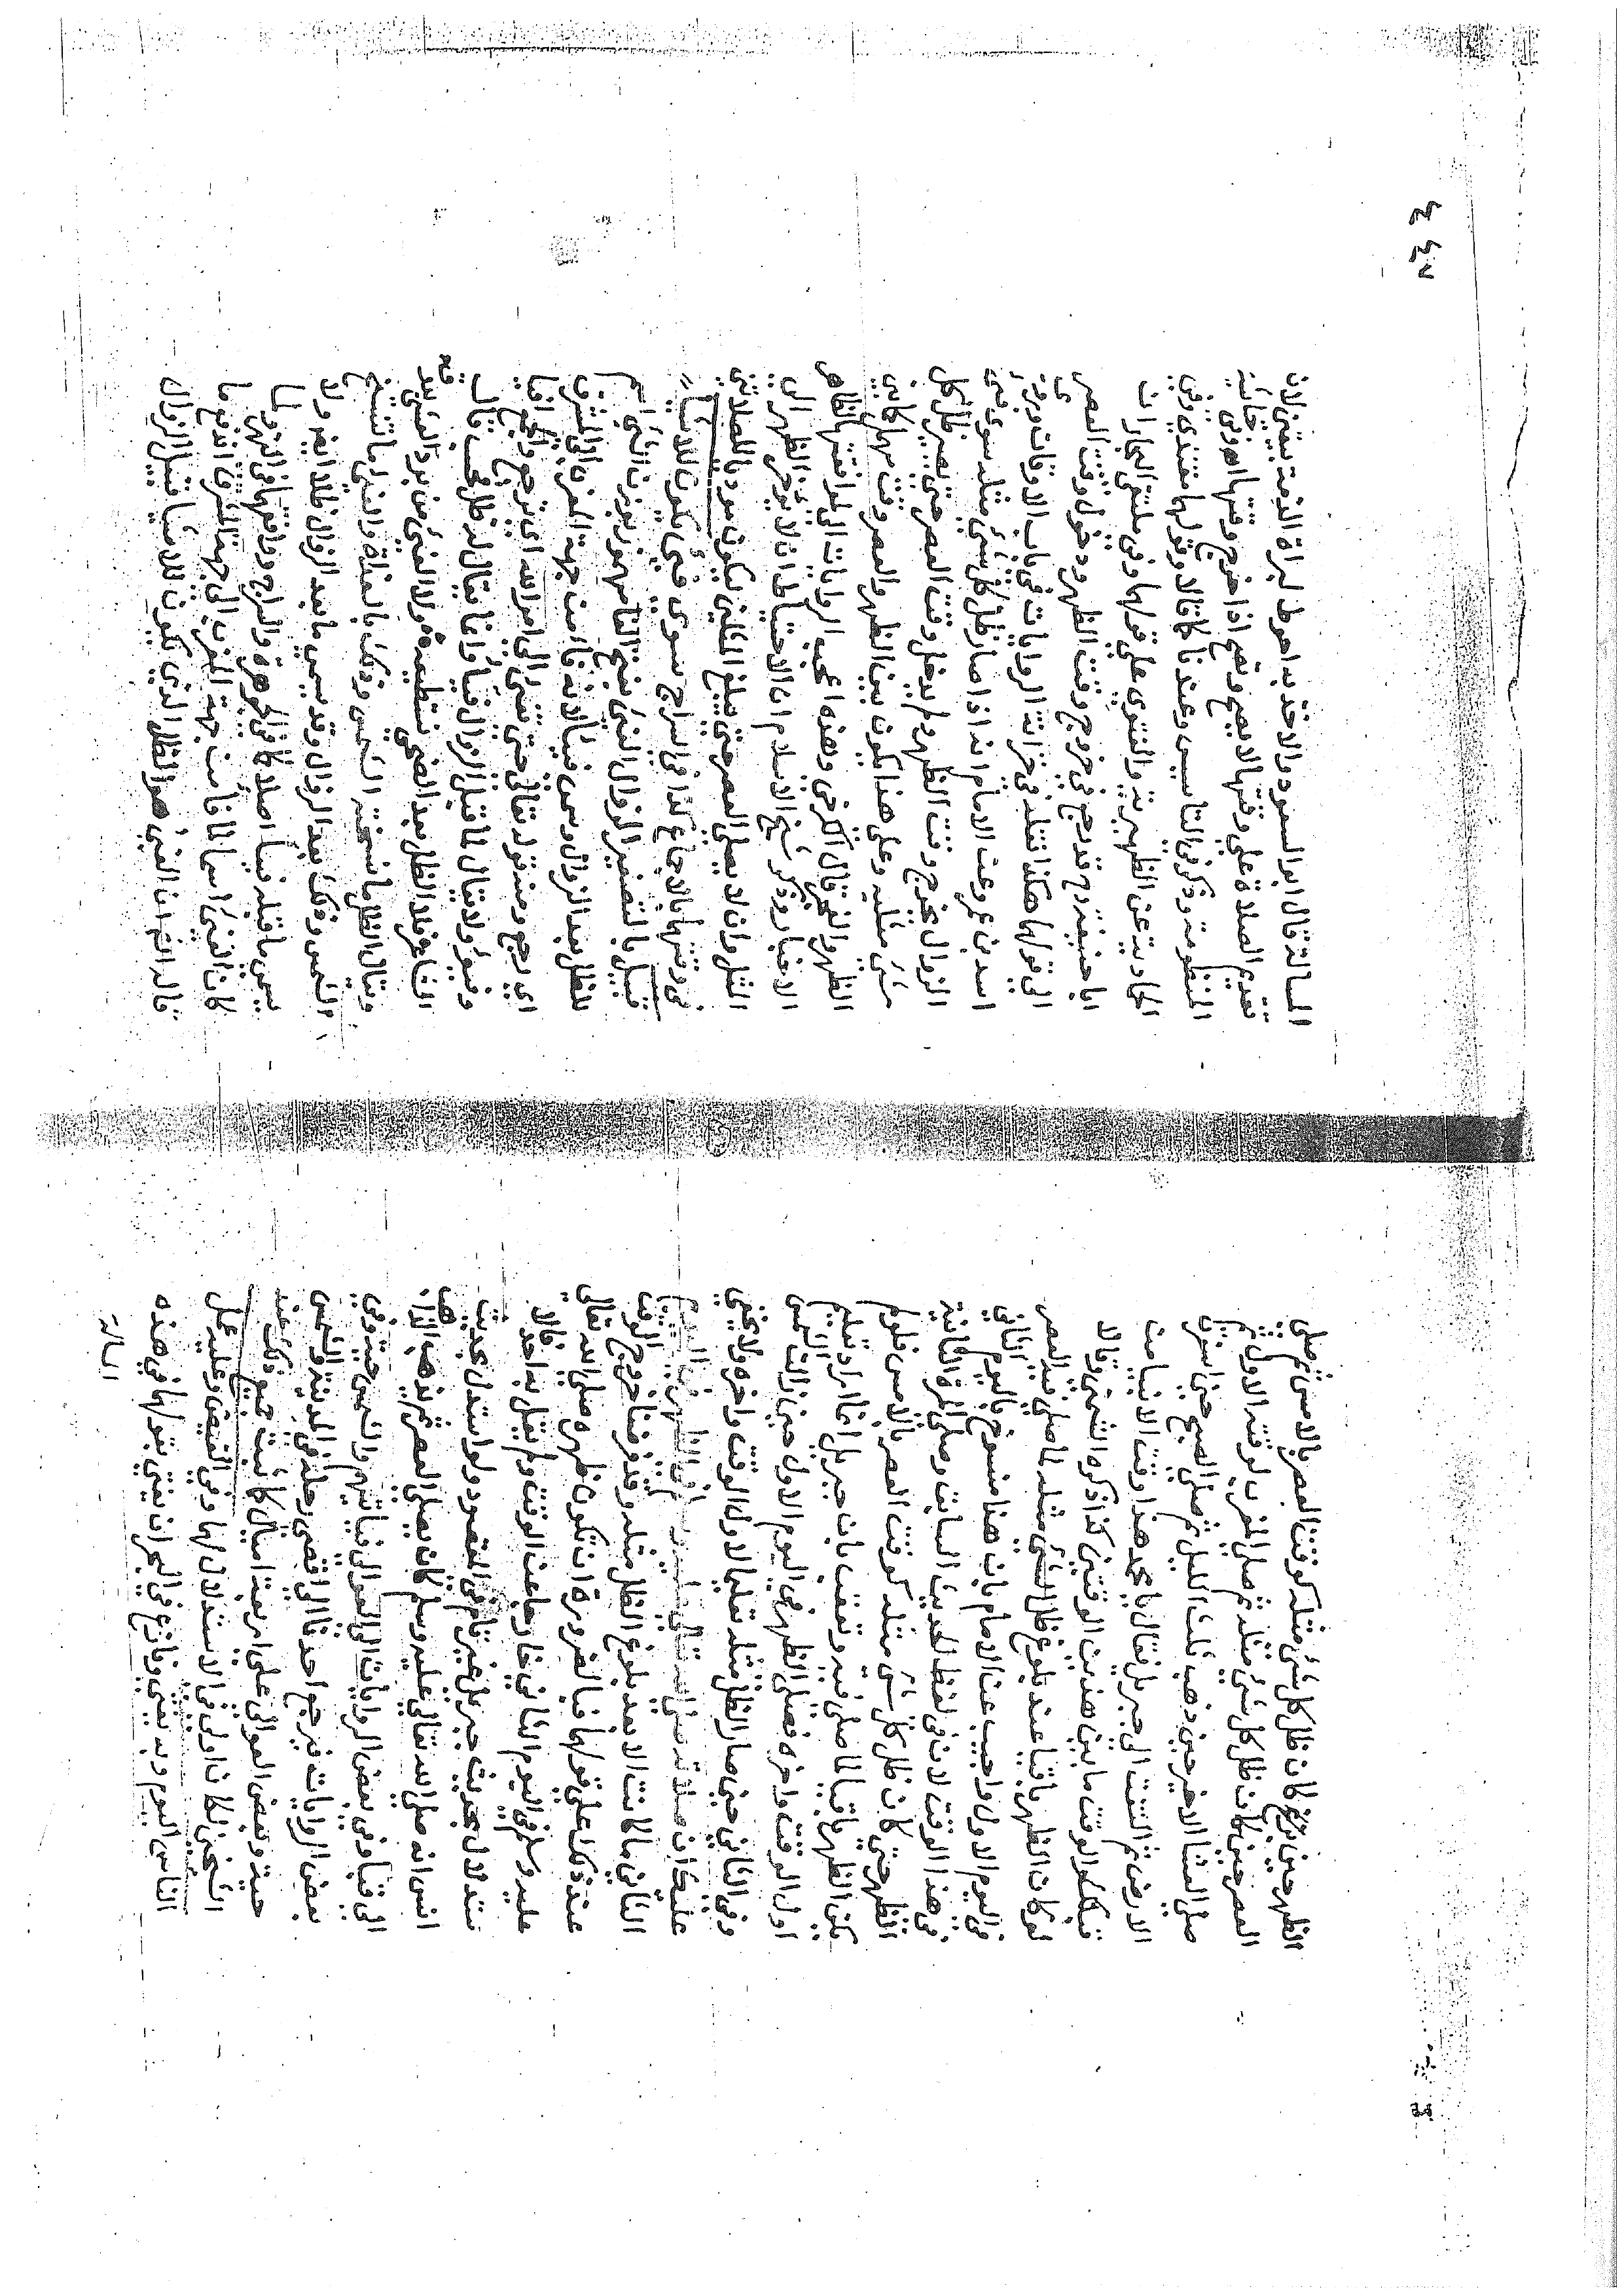 الظهر حين كان ظل كل شئ مثله كوقت العصر بالامس ثم صلى
العصر حين كان ظل كل شئ مثليه ثم صلى المغرب لوقته الاول ثم
صلى العشا الاخير حين ذهب ثلث الليل ثم صلى الصبح حين اسفرت
الارض ثم التفت الى جبريل فقال يا محمد هذا وقت الانبيا من
قبلك والوقت ما بين هذين الوقتين كذا ذكره الشمني وقالا
لو كان الظهر باقيا عند بلوغ ظل الشئ مثله لما صلى فيه العصر
في اليوم الاول واجيب عن الامام بان هذا منسوخ باليوم الثاني
في هذا الوقت لان في لفظ الحديث السابق وصلى المرة الثانية
الظهر حين كان ظل كل شئ مثله كوقت العصر بالامس فلو لم
يكن الظهر باقيا لما صلى فيه وتعقب بان جبريل انما اراد تعليم
اول الوقت واخره فصلى الظهر في اليوم الاول حين زالت الشمس
وفي الثاني حين صار الظل مثله تعليما لاول الوقت واخره ولا يخفى
عليك ان صلاته صلى الله تعالى عليه وسلم الظهر في اليوم
الثاني ما كانت الا بعد بلوغ الظل مثله وقد فرضنا خروج الوقت
عند ذلك على قولهما فبالضرورة ان تكون ظهره صلى الله تعالى
عليه وسلم في اليوم الثاني خارجا عن الوقت ولم يقل به احد فالا
ستدلال بحديث جبريل غير تام في المقصود ولو استدل بحديث
انس انه صلى الله تعالى عليه وسلم كان يصلى العصر ثم يذهب الذاهب
الى قبا وفي بعض الروايات الى العوالى فياتيهم والشمس حية وفي
بعض الروايات فيرجع احدنا الى اقصى رحله في المدينة والشمس
حية وبعض العوالى على اربعة اميال كما ثبت جميع ذلك عند
الشيخين لكان اولى في الاستدلال لهما وفي الفيض وعليه عمل
الناس اليوم وبه يفتى ونازع في البحر ان يفتى بقولهما في هذه
المسالة
المسالة قال ابو السعود والاخذ به احوط لبراة الذمة بيقين لان
تقديم الصلاة على وقتها لا يصح وتصح اذا خرج وقتها
المنظومة وذكر في التاسيس وعندنا كما قالا وقولهما
الحاوية عن الظهيرية والفتوى على قولهما وفي ملتقى البحار ان
ابا حنيفة رح قد رجع في خروج وقت الظهر ودخول وقت العصر
الى قولهما هكذا نقله في خزانة الروايات في باب الاوقات وروى
اسد بن عمرو عن الامام انه اذا صار ظل كل شئ مثله سوى فئ
الزوال خرج وقت الظهر ولم يدخل وقت العصر حتى يصير ظل كل
شئ مثليه وعلى هذا يكون بين الظهر والعصر وقت مهمل كما بين
الظهر والفجر قال الكرخي وهذه اعجب الروايات الي لموافقتها لظاهر
الاخبار وذكر شيخ الاسلام ان الاحتياط ان لا يوخر الظهر الى
المثل وان لا يصلى العصر حتى يبلغ المثلين ليكون موديا للصلاتين
في وقتهما بالاجماع كذا في السراج سوى فئ يكون للاشيا
قبيل بالتصغير الزوال الفئ بفتح الفا مهموز بوزن الشئ اسم
للظل بعد الزوال وسمى فيئا لانه فا من جهة المغرب الى المشرق
اى رجع ومنه قوله تعالى حتى تفئ الى امر الله اى ترجع
ولا يقال لما قبل الزوال فيئا وانما يقال له ظل
الشاعر فلا الظل بعد الضحى نستطيعه ولا الفئ من برد العشى
ويقال الظل ما نسخته الشمس وذلك بالغداة والفئ ما نسخ
الشمس وذلك بعد الزوال وقد يسمى ما بعد الزوال ظلا ايضا ولا
يسمى ما قبله فيئا اصلا كما في الجوهرة والسراج ووافقهما في النهر
كان الفئ اسما لما فا من جهة المغرب الى جهة المشرق
قاله الشمني ان الفئ هو الظل الذي يكون للاشيا قبيل الزوال